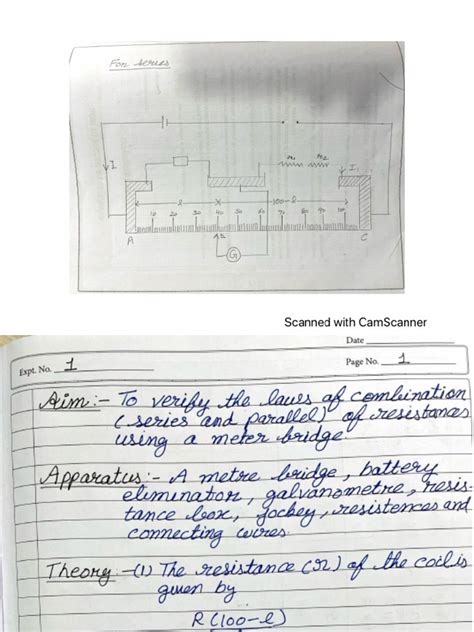 For series
r1 r2
I I1
l X 100-l
10 20 30 40 50 60 70 80 90 100
A C
G
Scanned with CamScanner
Date
Expt. No. 1 Page No. 1
Aim:- To verify the laws of combination
(series and parallel) of resistances
using a meter bridge.
Apparatus:- A metre bridge, battery
eliminator, galvanometre, resis-
tance box, jockey, resistences and
connecting wires.
Theory -(1) The resistance (r) of the coil is
given by
R(100-l)